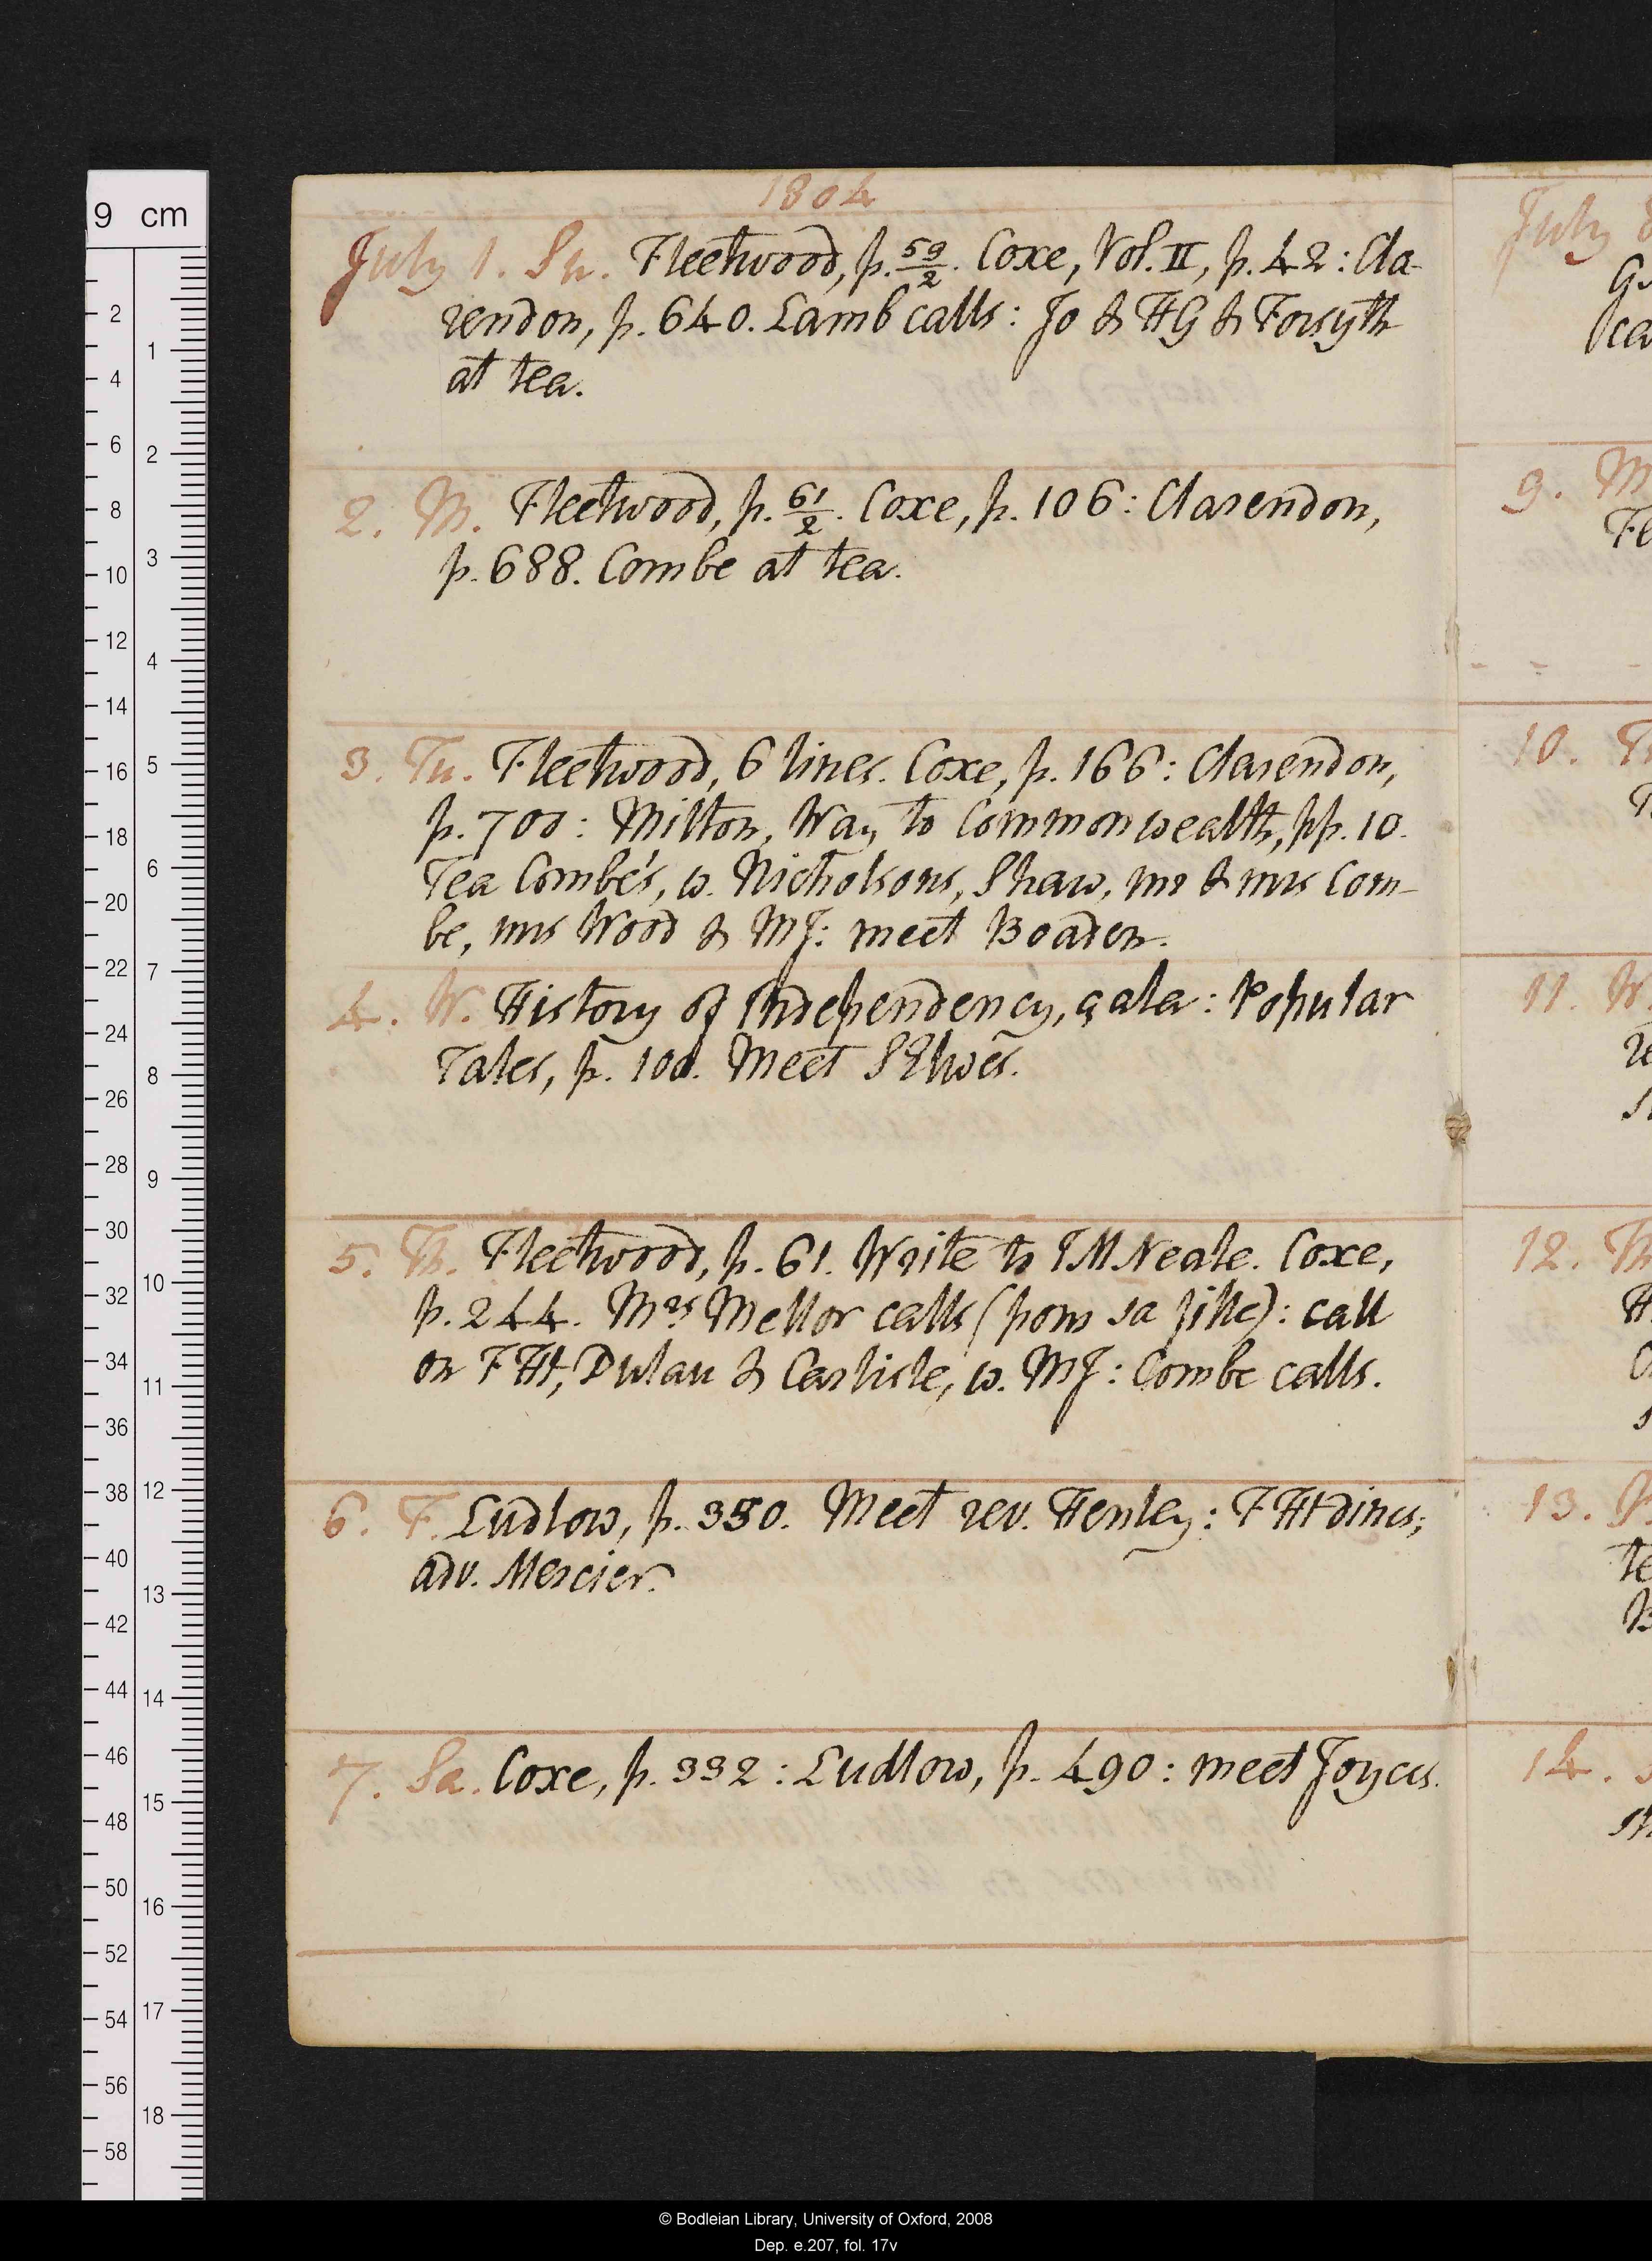 1804
July 1. Su. Fleetwood, p. 59/2. Coxe, Vol. II, p. 42: Cla-
rendon, p. 640. Lamb calls: Jo & HG & Forsyth
at tea.
2. M. Fleetwood, p. 61/2. Coxe, p. 106: Clarendon,
p. 688. Combe at tea.
3. Tu. Fleetwood, 6 lines. Coxe, p. 166: Clarendon,
p. 700: Milton, Way to Commonwealth, pp. 10.
Tea Combe's, w. Nicholsons, Shaw, mr & mrs Com-
be, mrs Wood & MJ: meet Boaden.
4. W. History of Independency, çala: Popular
Tales, p. 100. Meet SElwes.
5. Th. Fleetwood, p. 61. Write to TMNeale. Coxe,
p. 244. Mrs Mellor calls (pour sa fille): call
on FHt, Dulau & Carlisle, w. MJ: Combe calls.
6. F. Ludlow, p. 350. Meet rev. Henley: FHt dines;
adv. Mercier.
7. Sa. Coxe, p. 332: Ludlow, p. 490: meet Joyces.
July 8
ca
9. M
Fe
10. T
11. W
12. Th
13.
te
B
14.
9 cm
2
4
6
8
10
12
14
16
18
20
22
24
26
28
30
32
34
36
38
40
42
44
46
48
50
52
54
56
58
1
2
3
4
5
6
7
8
9
10
11
12
13
14
15
16
17
18
© Bodleian Library, University of Oxford, 2008
Dep. e.207, fol. 17v